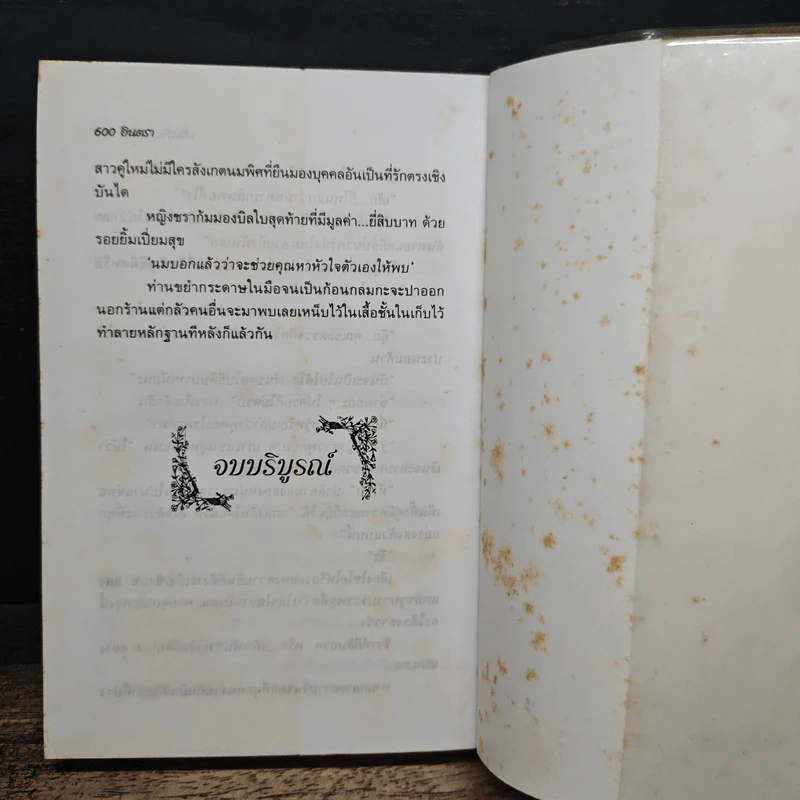 600 อินตรา
สาวคู่ใหม่ไม่มีใครสังเกตนมพิศที่ยืนมองบุคคลอันเป็นที่รักตรงเชิง
บันได
หญิงชราก้มมองบิลใบสุดท้ายที่มีมูลค่า...ยี่สิบบาท ด้วย
รอยยิ้มเปี่ยมสุข
‘นมบอกแล้วว่าจะช่วยคุณหาหัวใจตัวเองให้พบ’
ท่านขยำกระดาษในมือจนเป็นก้อนกลมกะจะปาออก
นอกร้านแต่กลัวคนอื่นจะมาพบเลยเหน็บไว้ในเสื้อชั้นในเก็บไว้
ทำลายหลักฐานทีหลังก็แล้วกัน
จบบริบูรณ์